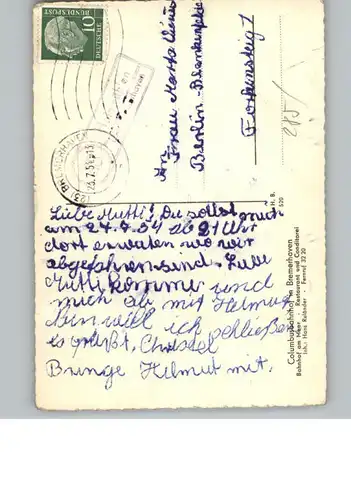 10
DEUTSCHE
BUNDESPOST
(23) BREMERHAVEN
23.7.54-13
An
Frau Martha
Berlin-Blankenfelde
285/
Liebe Mutti! Du sollst mich
am 24.7.54 ab 21 Uhr
dort erwarten wo wir
abgefahren sind. Liebe
Mutti komme und
mich ab mit Helmut
will ich schließen
es grüßt, Christel
Bringe Helmut mit.
H. B.
520
Columbusbahnhof in Bremerhaven
Bahnhof am Meer - Restaurant und Conditorei
Inh.: Hans Rulander - Fernruf 32 20